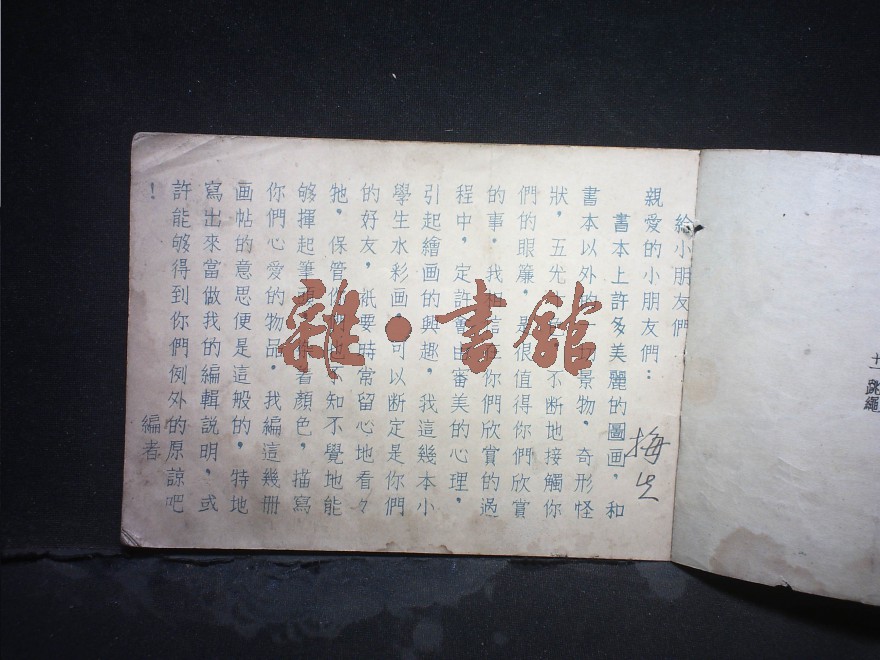 給小朋友們
親愛的小朋友們：
書本上許多美麗的圖画，和
書本以外的一切景物，奇形怪
狀，五光 不断地接觸你
們的眼簾，是很值得你們欣賞
的事，我 信 你們欣賞的過
程中，定許會由審美的心理，
引起繪画的興趣，我這幾本小
學生水彩画，可以断定是你們
的好友，祇要時常留心地看々
牠，保管你 不知不覺地能
够揮起筆頭 着顏色，描寫
你們心愛的物品。我編這幾冊
画帖的意思便是這般的，特地
寫出來當做我的編輯説明，或
許能够得到你們例外的原諒吧
！
編者
梅
雜·書舘
十一 跳繩